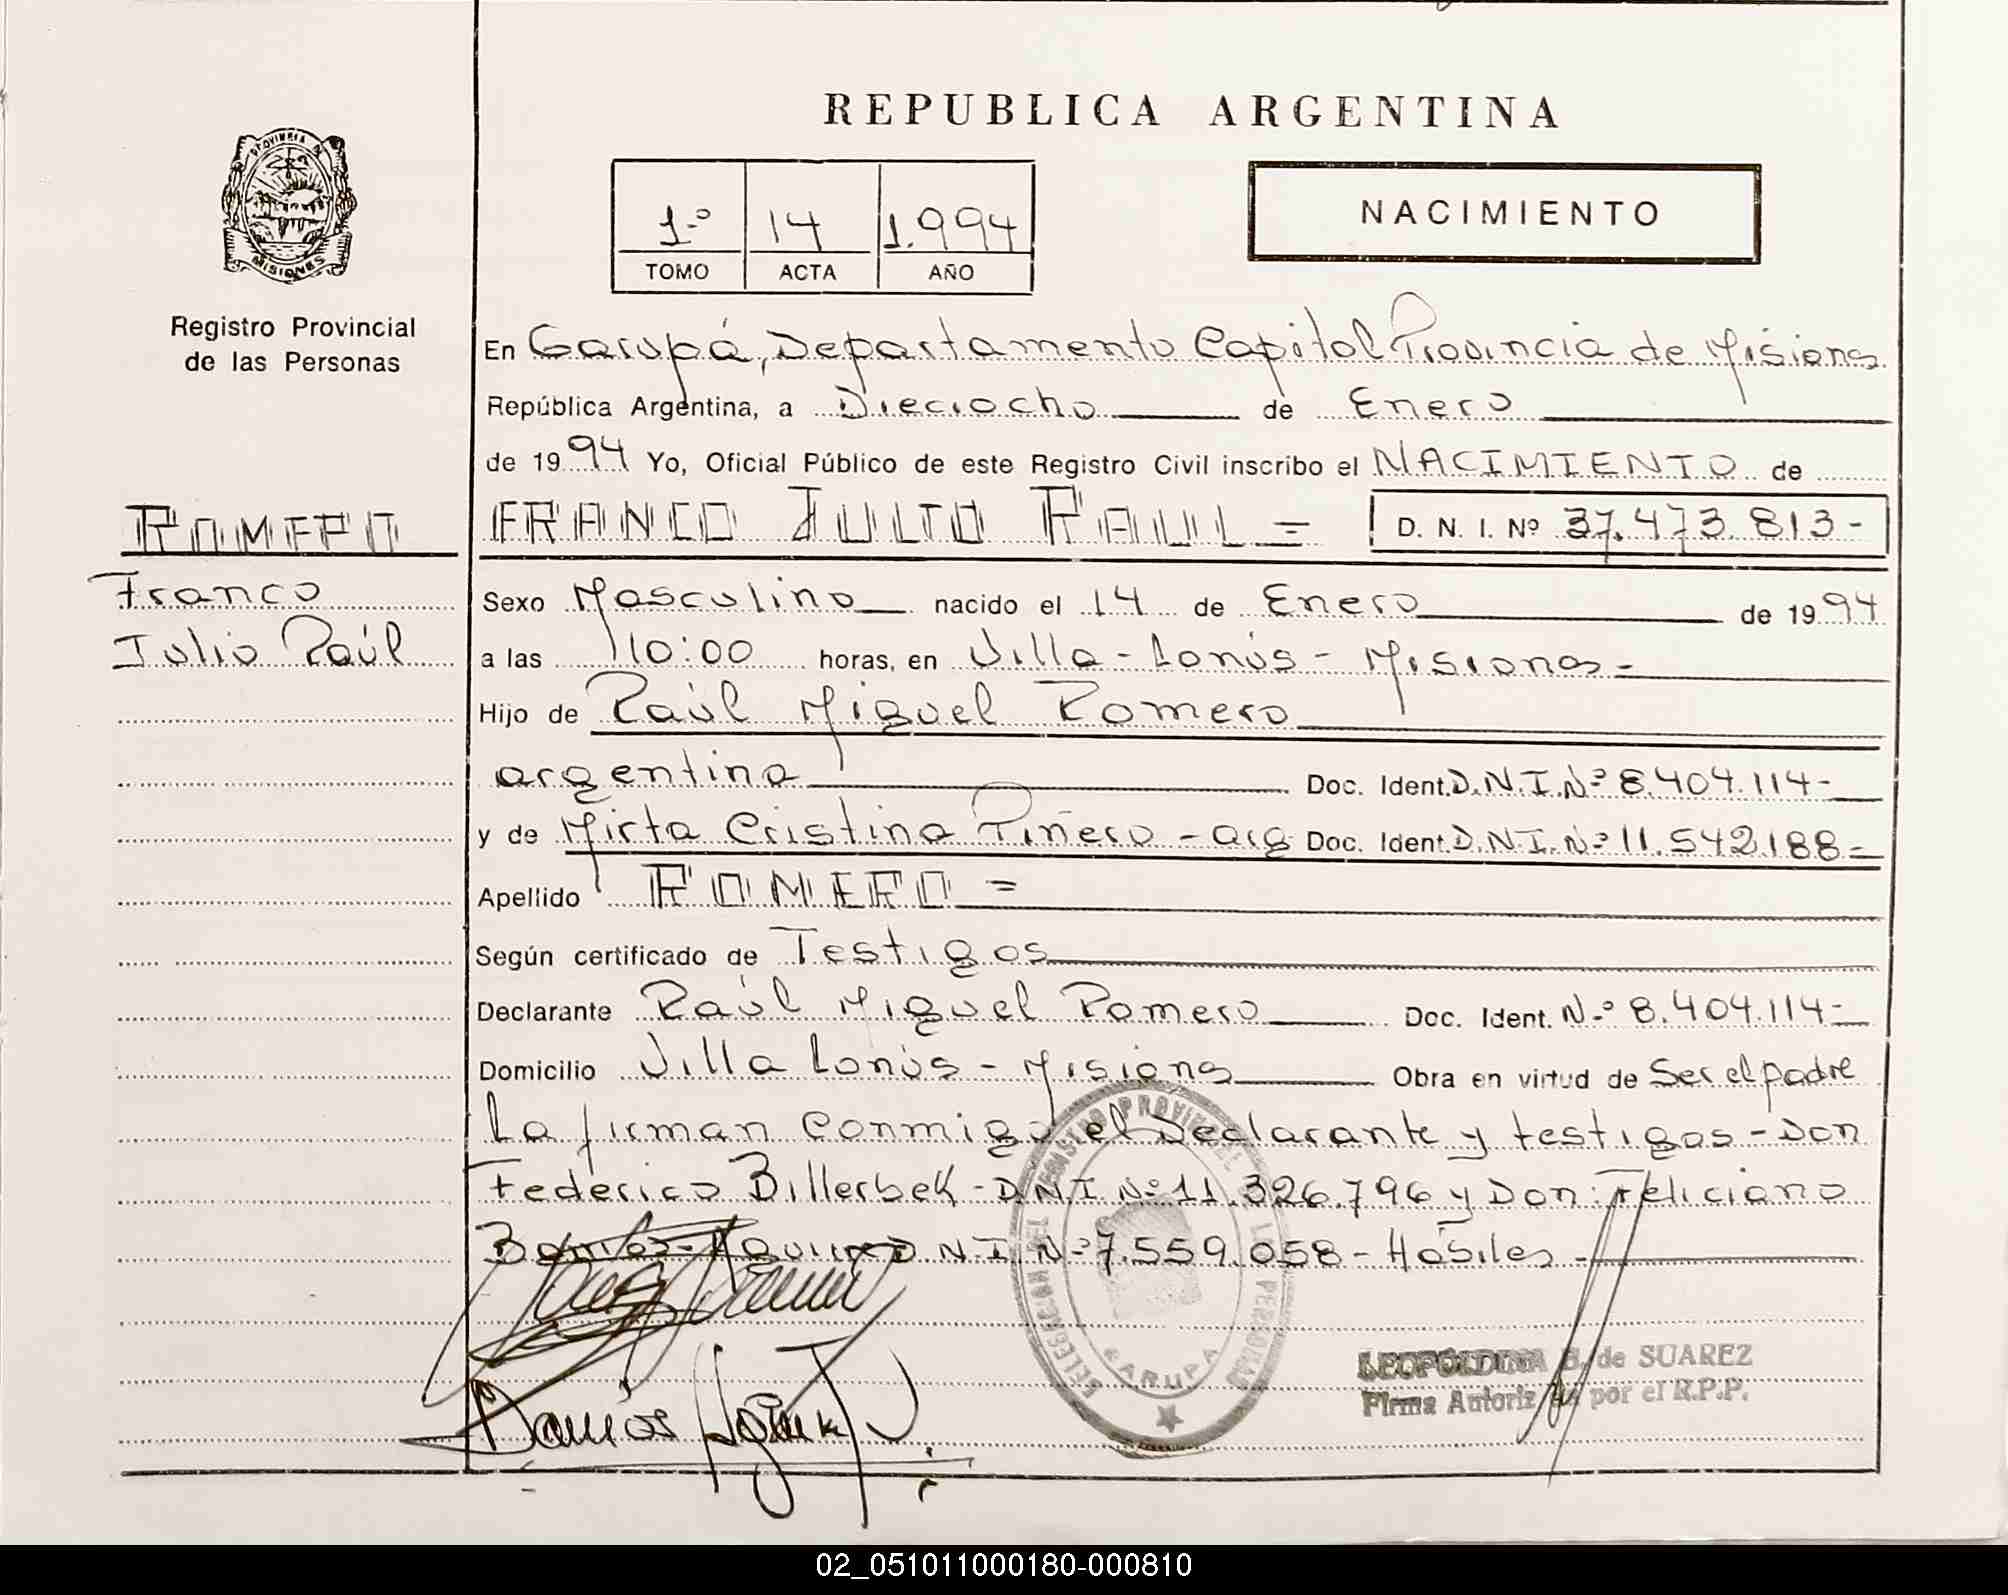 REPUBLICA ARGENTINA
PROVINCIA DE
MISIONES
Registro Provincial
de las Personas
1.º 14 1.994
TOMO ACTA AÑO
NACIMIENTO
En Garupá, Departamento Capital Provincia de Misiones
República Argentina, a Dieciocho de Enero
de 1994 Yo, Oficial Público de este Registro Civil inscribo el NACIMIENTO de
ROMERO
FRANCO JULIO RAUL =
D. N. I. Nº 37.473.813-
Franco
Julio Raúl
Sexo Masculino nacido el 14 de Enero de 1994
a las 10:00 horas, en Villa - Lanús - Misiones -
Hijo de Raúl Miguel Romero
argentino Doc. Ident. D.N.I.Nº 8.404.114-
y de Mirta Cristina Piñero - arg Doc. Ident. D.N.I.Nº 11.542.188-
Apellido ROMERO =
Según certificado de Testigos
Declarante Raúl Miguel Romero Doc. Ident. N.º 8.404.114-
Domicilio Villa Lanús - Misiones Obra en virtud de Ser el padre
La firman conmigo el Declarante y testigos - Don
Federico Billerbek - D.N.I Nº 11.326.796 y Don: Feliciano
D.N.I. Nº 7.559.058 - Hábiles -
DELEGACION DEL REGISTRO PROVINCIAL DE LAS PERSONAS
GARUPA
LEOPOLDINA B. de SUAREZ
Firma Autoriz por el R.P.P.
02_051011000180-000810